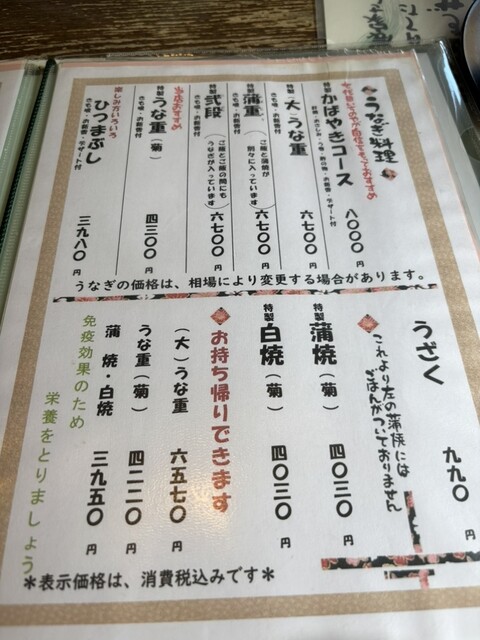 うなぎ料理
七代目しずのやが自信をもっておすすめ
特製 かばやきコース 八〇〇〇円
特製 大うな重 六七〇〇円
きも吸・お新香付
特製 蒲重 (ご飯と蒲焼が別々に入っています) 六七〇〇円
きも吸・お新香付
特製 弐段 (ご飯とご飯の間にもうなぎが入っています) 六七〇〇円
きも吸・お新香付
当店おすすめ
特製 うな重(菊) 四三〇〇円
きも吸・お新香付
楽しみ方いろいろ
ひつまぶし 三九八〇円
きも吸・お新香・デザート付
うなぎの価格は、相場により変更する場合があります。
うざく 九九〇円
これより左の蒲焼には
ごはんがついておりません
特製 蒲焼(菊) 四〇三〇円
特製 白焼(菊) 四〇三〇円
お持ち帰りできます
(大)うな重 六五七〇円
うな重(菊) 四二二〇円
蒲焼・白焼 三九五〇円
免疫効果のため
栄養をとりましょう
*表示価格は、消費税込みです*